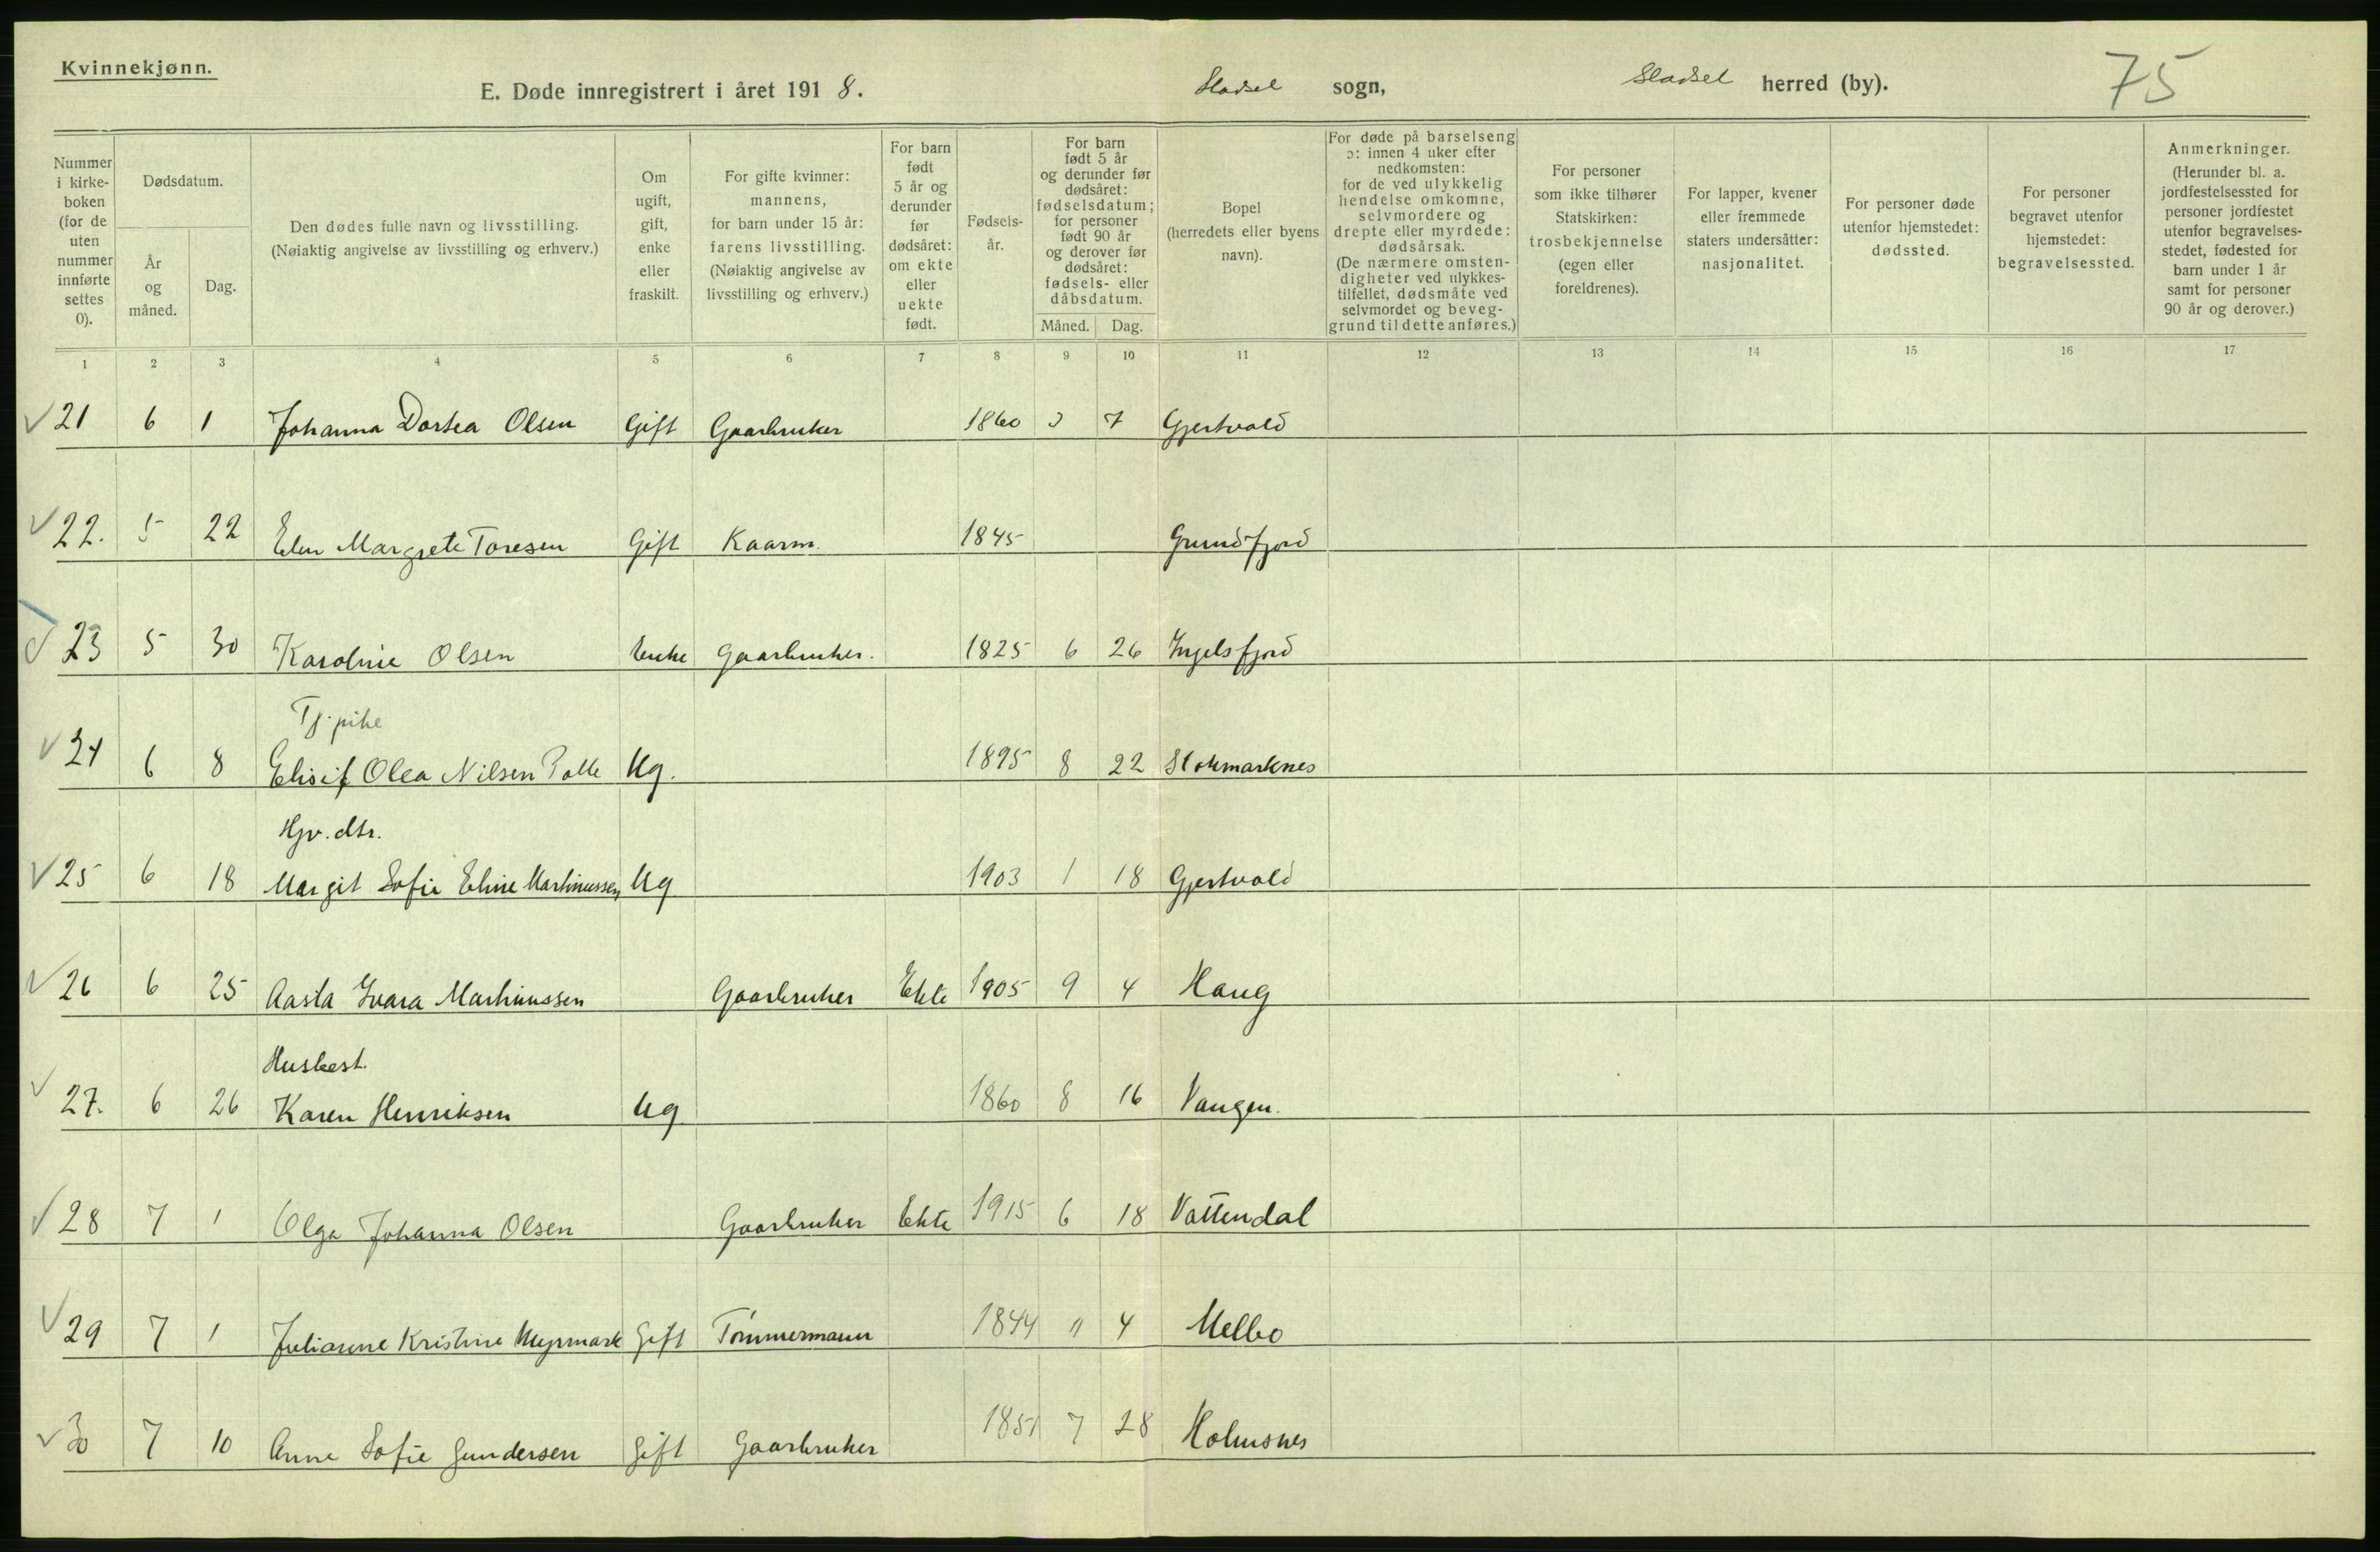 Kvinnekjønn.
E. Døde innregistrert i året 1918. Hadsel sogn, Hadsel herred (by). 75
Nummer i kirke-boken (for de uten nummer innførte settes 0).
Dødsdatum.
År og måned.
Dag.
Den dødes fulle navn og livsstilling.
(Nøiaktig angivelse av livsstilling og erhverv.)
Om ugift, gift, enke eller fraskilt.
For gifte kvinner: mannens, for barn under 15 år: farens livsstilling. (Nøiaktig angivelse av livsstilling og erhverv.)
For barn født 5 år og derunder før dødsåret: om ekte eller uekte født.
Fødsels-år.
For barn født 5 år og derunder før dødsåret: fødselsdatum; for personer født 90 år og derover før dødsåret: fødsels- eller dåbsdatum.
Måned. Dag.
Bopel (herredets eller byens navn).
For døde på barselseng ɔ: innen 4 uker efter nedkomsten: for de ved ulykkelig hendelse omkomne, selvmordere og drepte eller myrdede: dødsårsak. (De nærmere omsten-digheter ved ulykkes-tilfellet, dødsmåte ved selvmordet og beveg-grund til dette anføres.)
For personer som ikke tilhører Statskirken: trosbekjennelse (egen eller foreldrenes).
For lapper, kvener eller fremmede staters undersåtter: nasjonalitet.
For personer døde utenfor hjemstedet: dødssted.
For personer begravet utenfor hjemstedet: begravelsessted.
Anmerkninger. (Herunder bl. a. jordfestelsessted for personer jordfestet utenfor begravelses-stedet, fødested for barn under 1 år samt for personer 90 år og derover.)
1 2 3 4 5 6 7 8 9 10 11 12 13 14 15 16 17
21 6 1 Johanna Dortea Olsen Gift Gaarbruker 1860 3 7 Gjestvold
22. 5 22 Elen Margrete Toresen Gift Kaarm. 1845 Grundfjord
23 5 30 Karoline Olsen Enke Gaarbruker. 1825 6 26 Ingelsfjord
Tj. pike
24 6 8 Elisif Olea Nilsen Polle Ug. 1895 8 22 Stokmarknes
Hjv. dtr.
25 6 18 Margit Sofie Eline Martinussen Ug 1903 1 18 Gjestvold
26 6 25 Aasta Ivara Martinussen Gaarbruker Ekte 1905 9 4 Haug
Husbest.
27. 6 26 Karen Henriksen Ug 1860 8 16 Vangen.
28 7 1 Olga Johanna Olsen Gaarbruker Ekte 1915 6 18 Vattendal
29 7 1 Julianne Kristine Myrmark Gift Tømmermann 1844 11 4 Melbo
30 7 10 Anne Sofie Gundersen Gift Gaarbruker 1851 7 28 Holmsnes